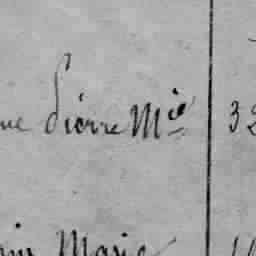 ue Pierre Mie 32
Marie